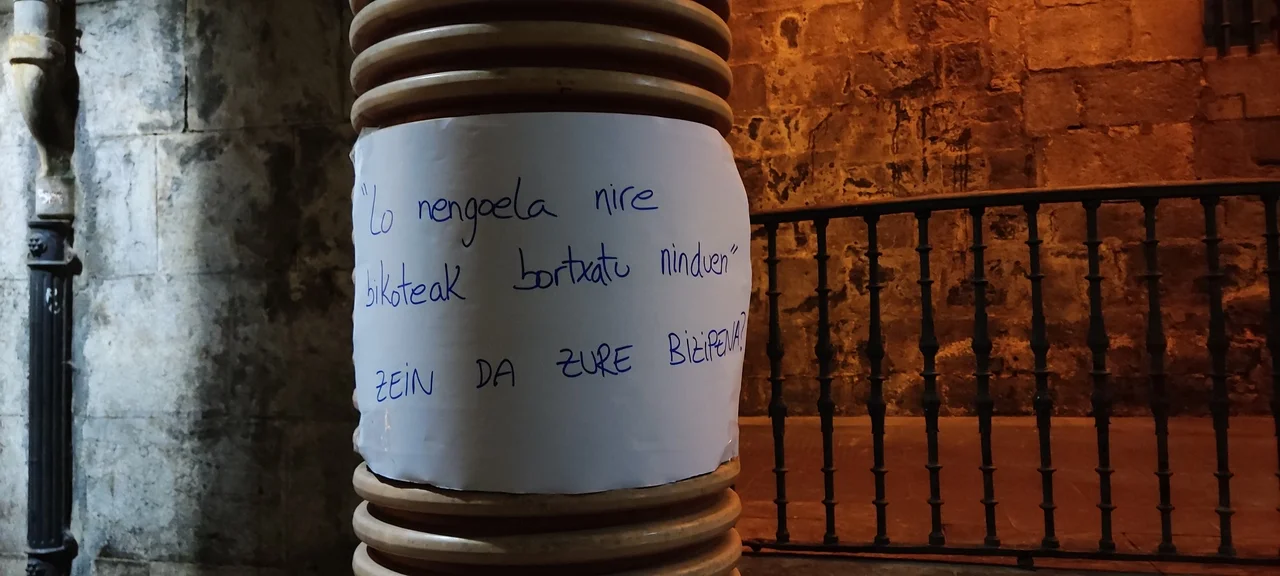 "Lo nengoela nire
bikoteak bortxatu ninduen"
ZEiN DA ZURE BiZiPENA?